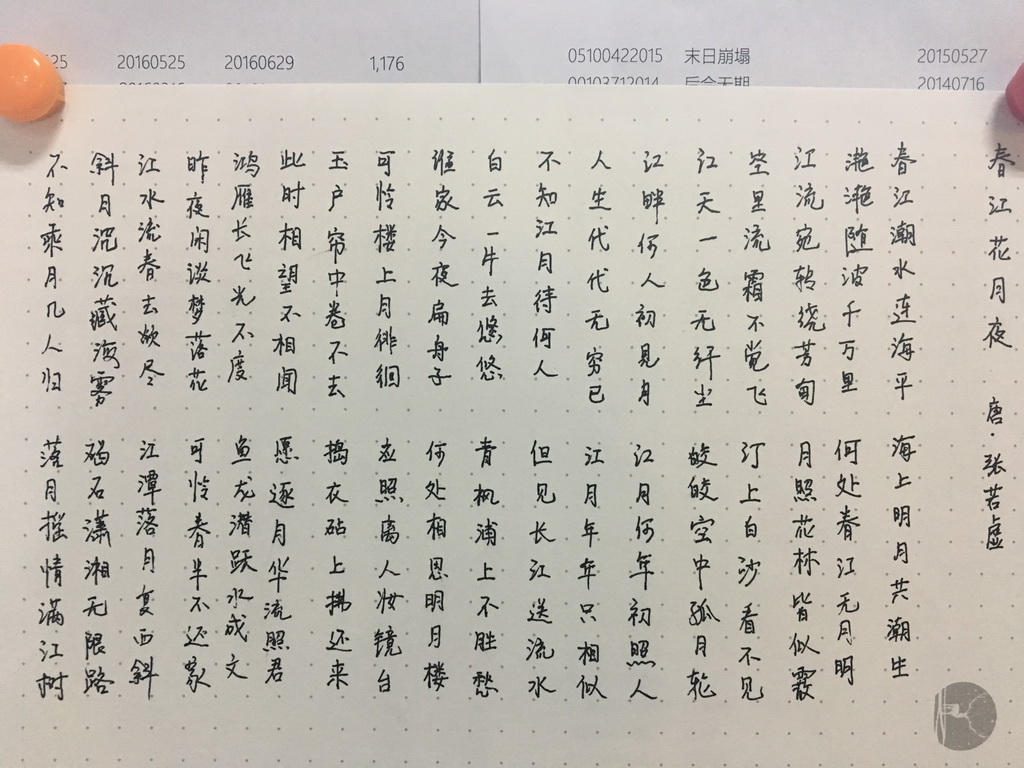 20160525 20160629 1,176 05100422015 末日崩塌 20150527
20140716
春江花月夜 唐·张若虚
春江潮水连海平 海上明月共潮生
滟滟随波千万里 何处春江无月明
江流宛转绕芳甸 月照花林皆似霰
空里流霜不觉飞 汀上白沙看不见
江天一色无纤尘 皎皎空中孤月轮
江畔何人初见月 江月何年初照人
人生代代无穷已 江月年年只相似
不知江月待何人 但见长江送流水
白云一片去悠悠 青枫浦上不胜愁
谁家今夜扁舟子 何处相思明月楼
可怜楼上月徘徊 应照离人妆镜台
玉户帘中卷不去 捣衣砧上拂还来
此时相望不相闻 愿逐月华流照君
鸿雁长飞光不度 鱼龙潜跃水成文
昨夜闲淡梦落花 可怜春半不还家
江水流春去欲尽 江潭落月复西斜
斜月沉沉藏海雾 碣石潇湘无限路
不知乘月几人归 落月摇情满江树